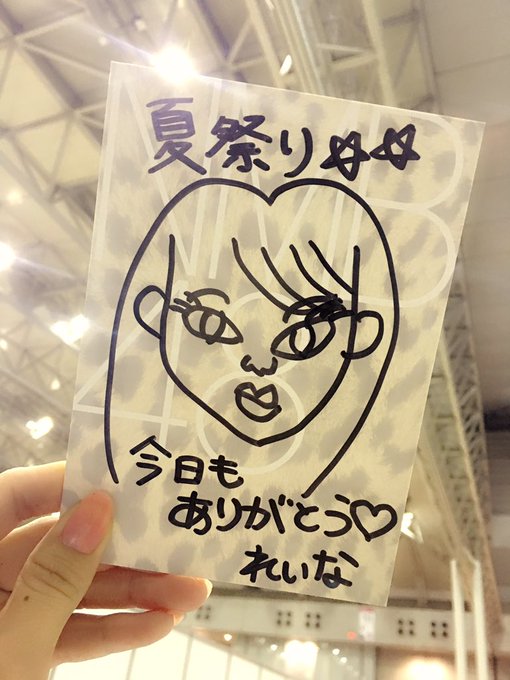 夏祭り☆☆
NMB
48
今日も
ありがとう♡
れいな